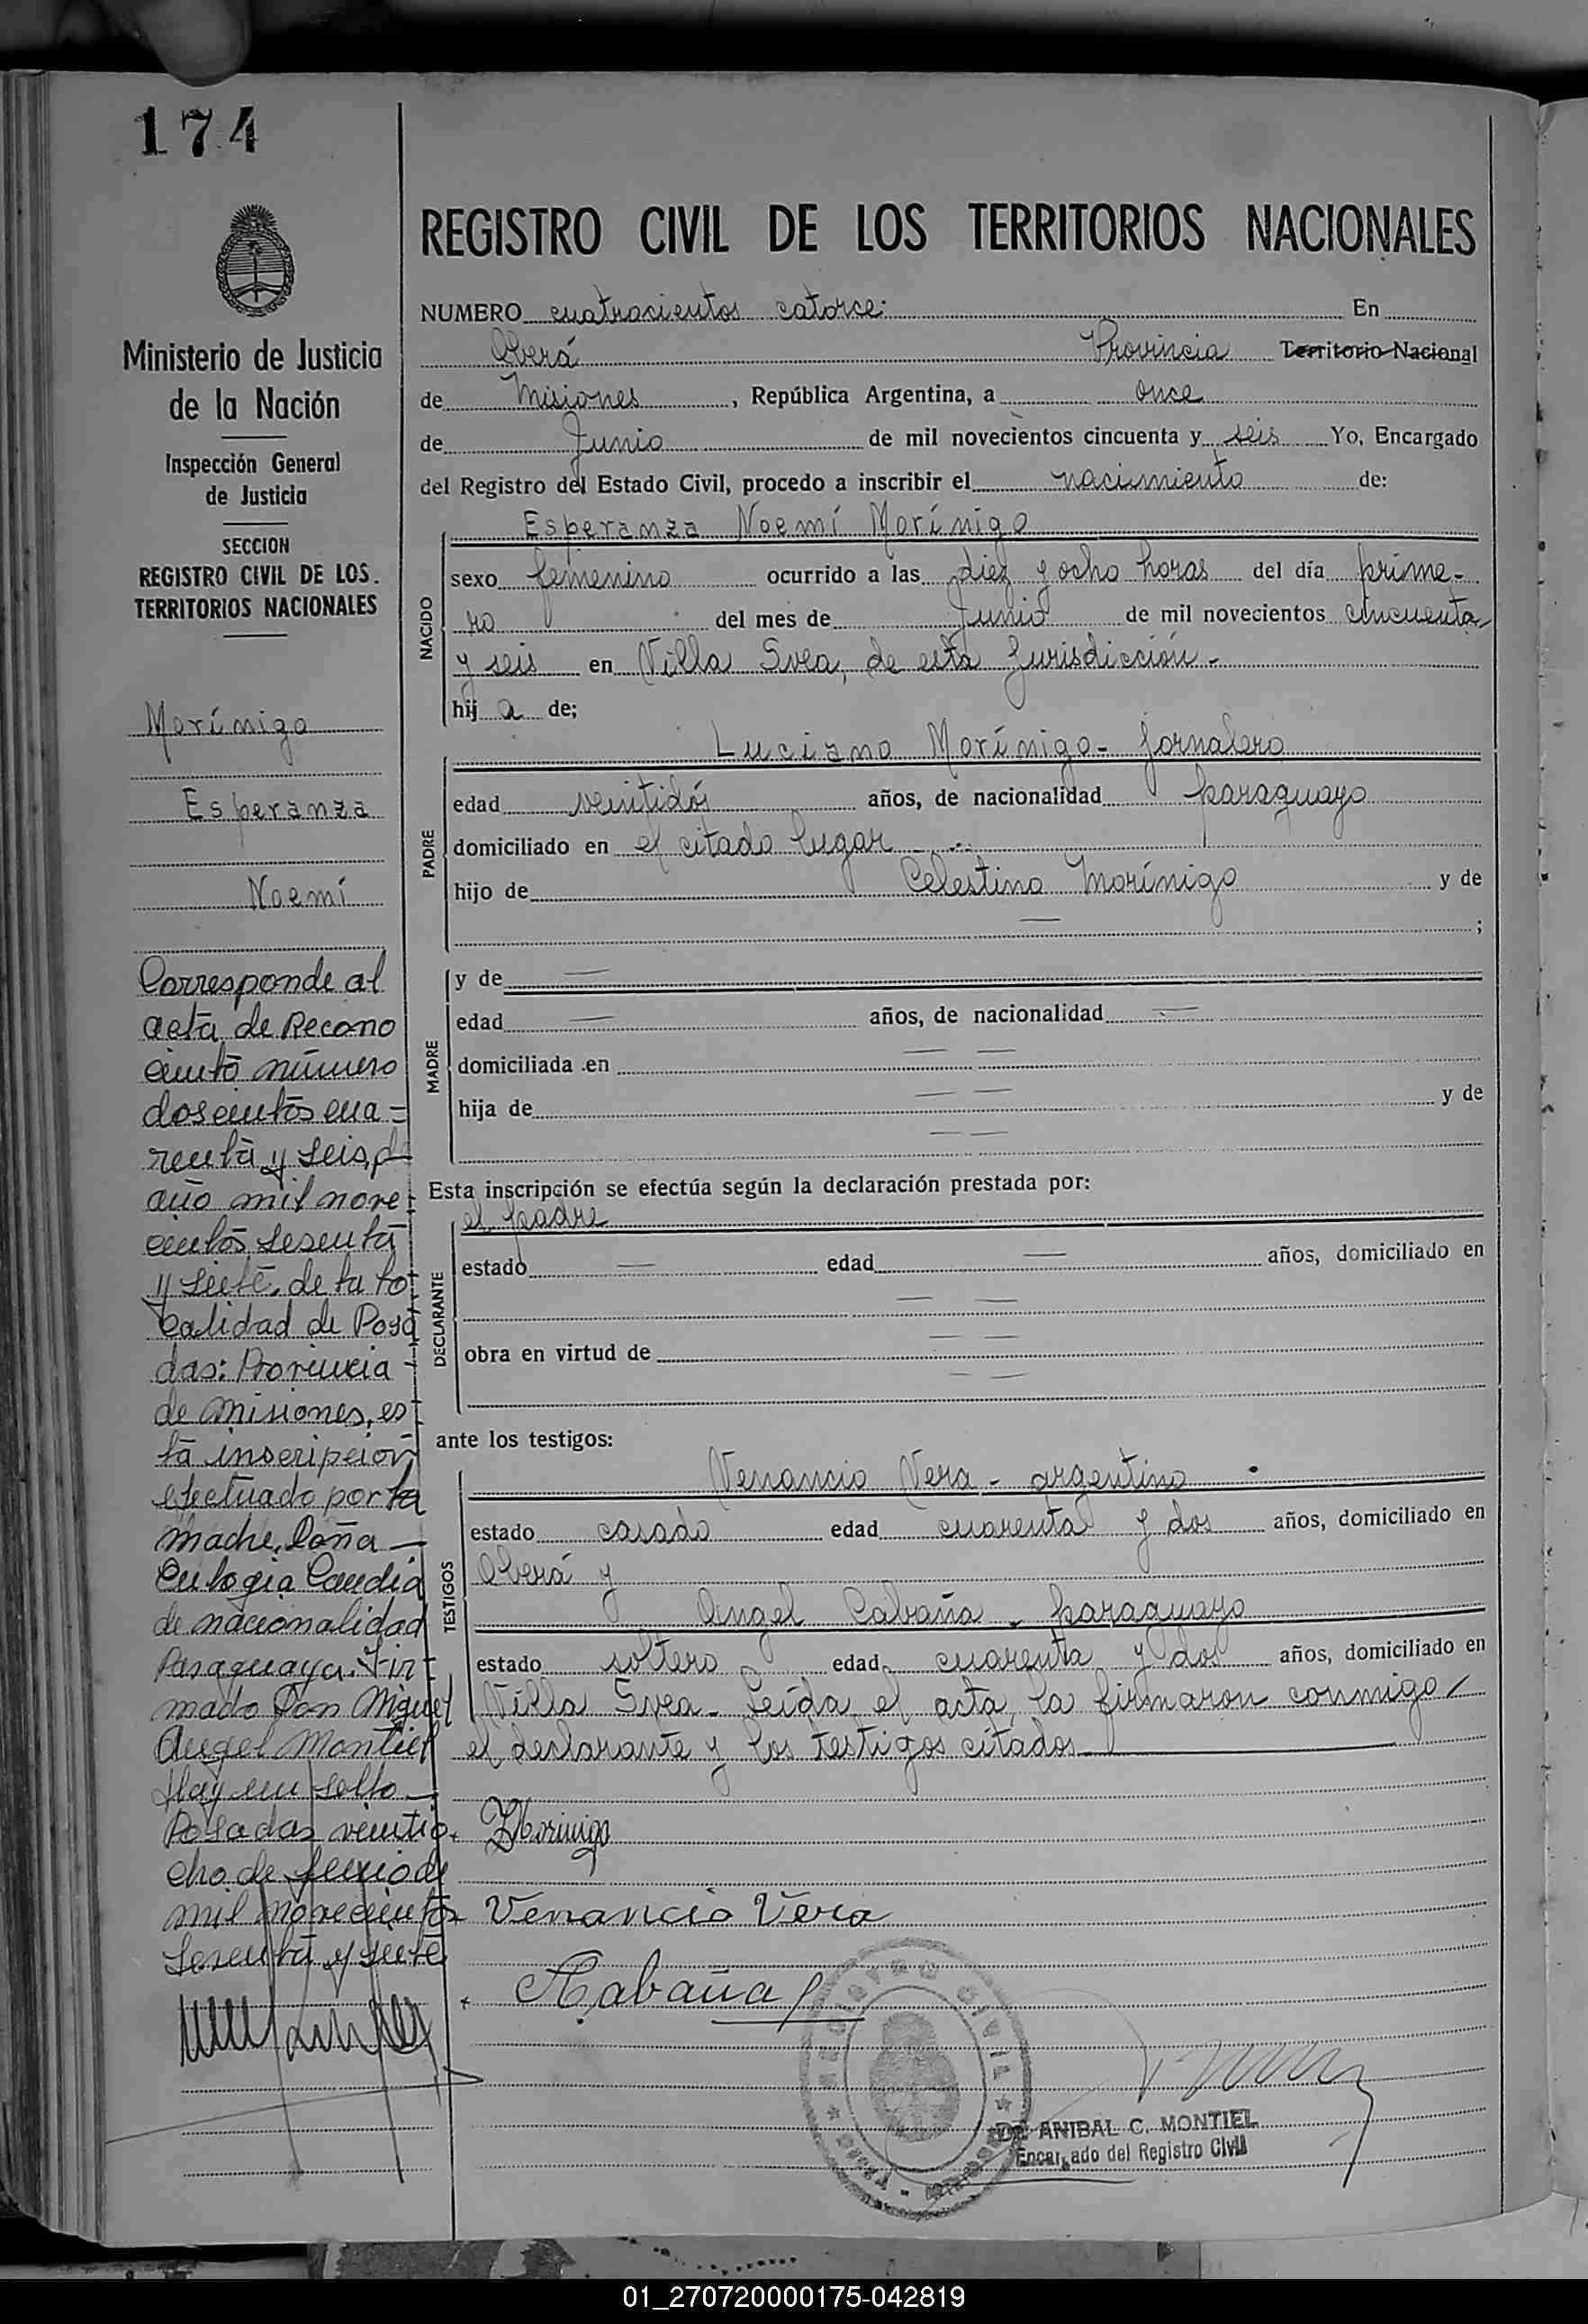 174
Ministerio de Justicia
de la Nación
Inspección General
de Justicia
SECCION
REGISTRO CIVIL DE LOS.
TERRITORIOS NACIONALES
Morínigo
Esperanza
Noemí
Corresponde al
acta de Recono
cimto número
doscientos cua-
renta y seis, d
año mil nove-
cientos sesenta
y siete, de la lo
calidad de Posa
das: Provincia
de Misiones, es
ta inscripción
efectuado por la
madre, Doña
Eulogia Candia
de nacionalidad
Paraguaya. Fir-
mado Don Miguel
Angel Montiel
Hay un sello
Posadas veintio-
cho de Junio de
mil novecientos
sesenta y siete
REGISTRO CIVIL DE LOS TERRITORIOS NACIONALES
NUMERO cuatrocientos catorce: En
Oberá Provincia Territorio Nacional
de Misiones, República Argentina, a once
de Junio de mil novecientos cincuenta y seis Yo, Encargado
del Registro del Estado Civil, procedo a inscribir el nacimiento de:
Esperanza Noemí Morínigo
NACIDO
sexo femenino ocurrido a las diez y ocho horas del día prime-
ro del mes de Junio de mil novecientos cincuenta
y seis en Villa Svea, de esta Jurisdicción.-
hij a de;
PADRE
Luciano Morínigo - Jornalero
edad veintidós años, de nacionalidad paraguayo
domiciliado en el citado lugar
hijo de Celestina Morínigo y de
— ;
MADRE
y de —
edad — años, de nacionalidad —
domiciliada en — —
hija de — — y de
— —
Esta inscripción se efectúa según la declaración prestada por:
DECLARANTE
el padre
estado — edad — años, domiciliado en
— —
obra en virtud de — —
— —
ante los testigos:
TESTIGOS
Venancio Vera - argentino
estado casado edad cuarenta y dos años, domiciliado en
Oberá y
Angel Cabaña - paraguayo
estado soltero edad cuarenta y dos años, domiciliado en
Villa Svea - Leída el acta, la firmaron conmigo
el declarante y los testigos citados
LMorinigo
Venancio Vera
ACabaña
REGISTRO CIVIL
ANIBAL C. MONTIEL
Encargado del Registro Civil
01_270720000175-042819